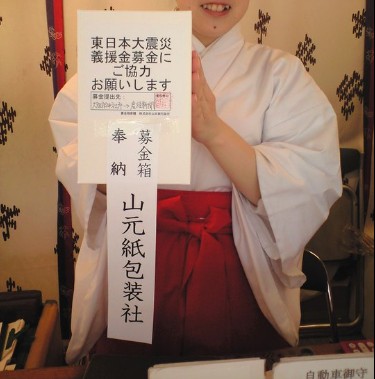 東日本大震災
義援金募金に
ご協力
お願いします
募金提出先：
募金箱
奉納
山元紙包装社
自動車御守